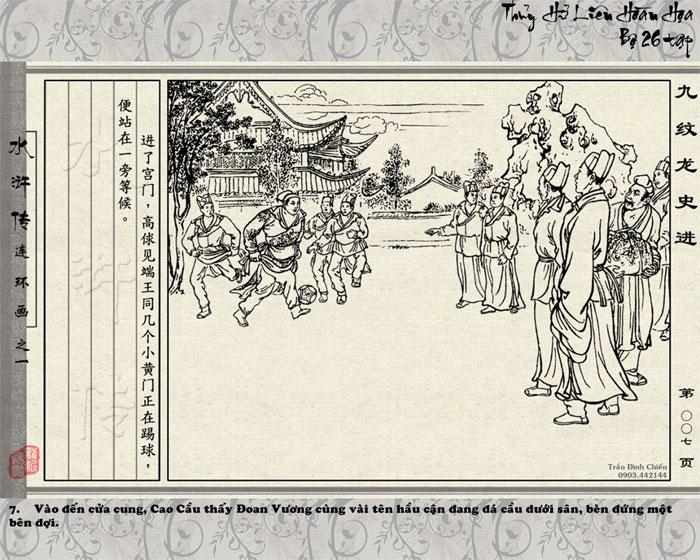 Thủy Hử Liên Hoàn Họa
Bộ 26 tập
九纹龙史进
第〇〇七页
进了宫门，高俅见端王同几个小黄门正在踢球，
便站在一旁等候。
水浒传
水浒传连环画之一
Trần Đình Chiến
0903.442144
7. Vào đến cửa cung, Cao Cầu thấy Đoan Vương cùng vài tên hầu cận đang đá cầu dưới sân, bèn đứng một
bên đợi.